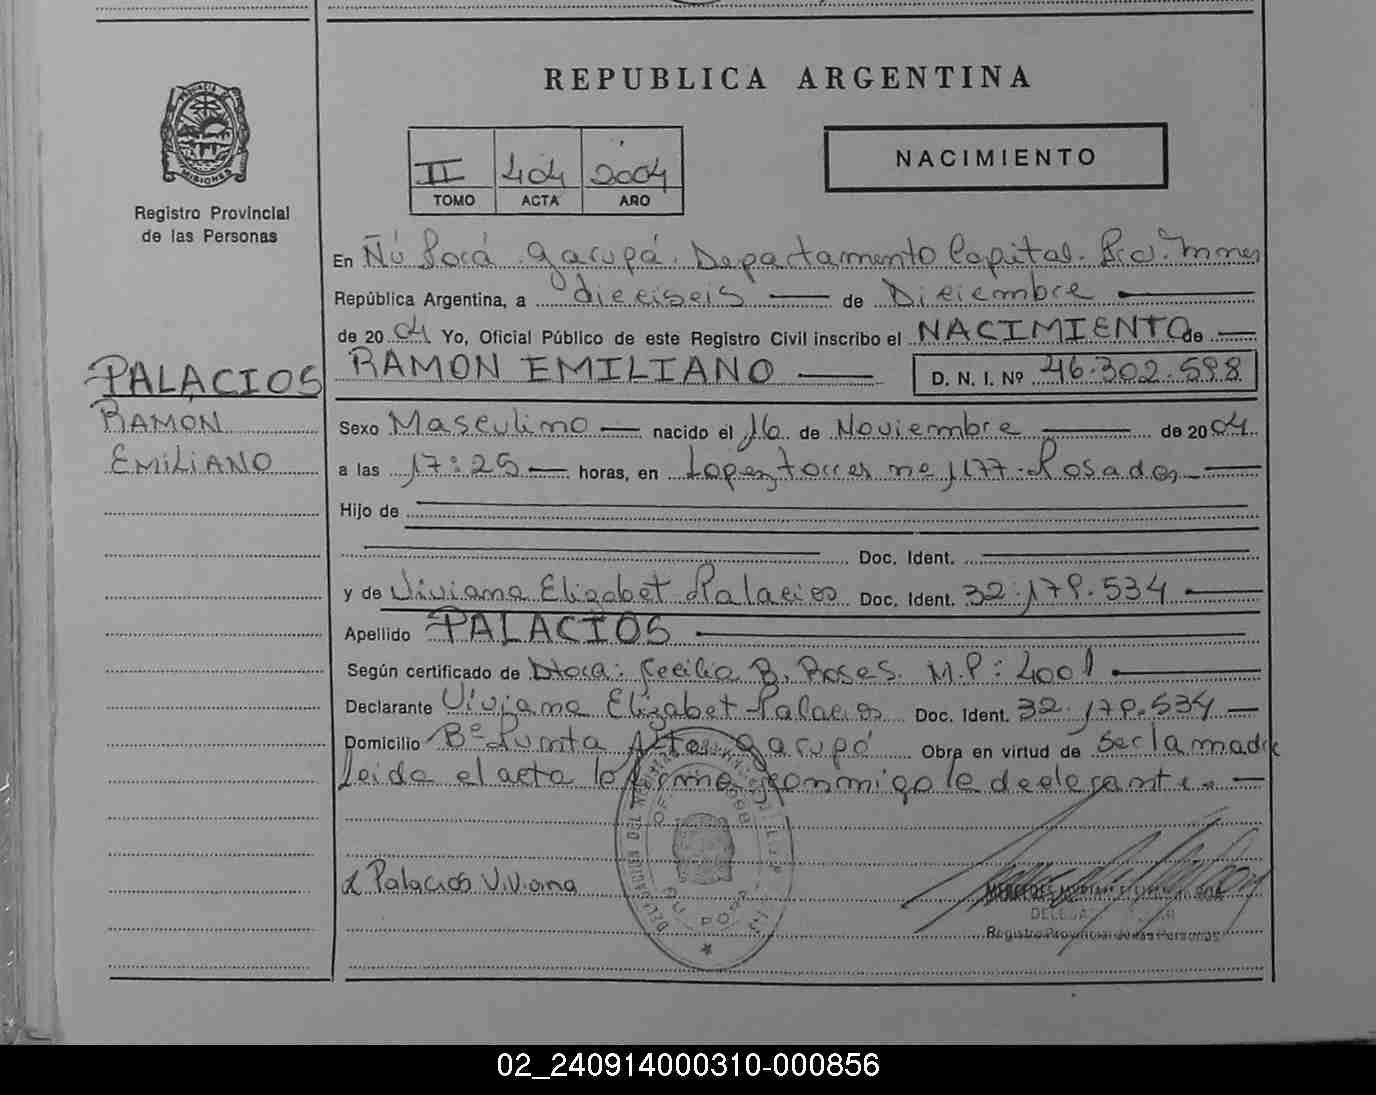 REPUBLICA ARGENTINA
PROVINCIA DE
MISIONES
Registro Provincial
de las Personas
II 404 2004
TOMO ACTA AÑO
NACIMIENTO
En Ñú Porá Garupá. Departamento Capital. Pcia. Mnes
República Argentina, a dieciseis de Diciembre
de 2004 Yo, Oficial Público de este Registro Civil inscribo el NACIMIENTO de
PALACIOS
RAMON EMILIANO D. N. I. Nº 46.302.598
RAMÓN
Sexo Masculino nacido el 16 de Noviembre de 2004
EMILIANO
a las 17:25 horas, en Lopez torres nº 1177. Posadas
Hijo de
Doc. Ident.
y de Viviana Elizabet Palacios Doc. Ident. 32.179.534
Apellido PALACIOS
Según certificado de Dtora: Cecilia B. Roses. M.P: 4001
Declarante Viviana Elizabet Palacios Doc. Ident. 32.179.534
Domicilio Bº Punta Alta Garupá Obra en virtud de ser la madre
Leida el acta la firma conmigo la declarante
Palacios Viviana
Registro Provincial de las Personas
02_240914000310-000856